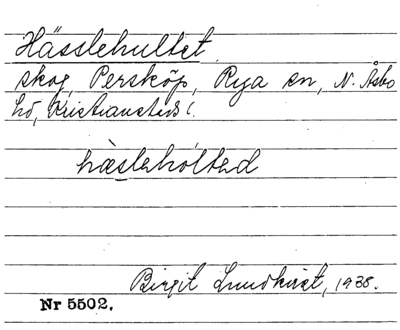 Hässlehultet
skog, Perskôp, Rya sn, N. Åsbo
hd, Kristianstads l.
hæslehóltad
Birgit Lundkvist, 1938.
Nr 5502.